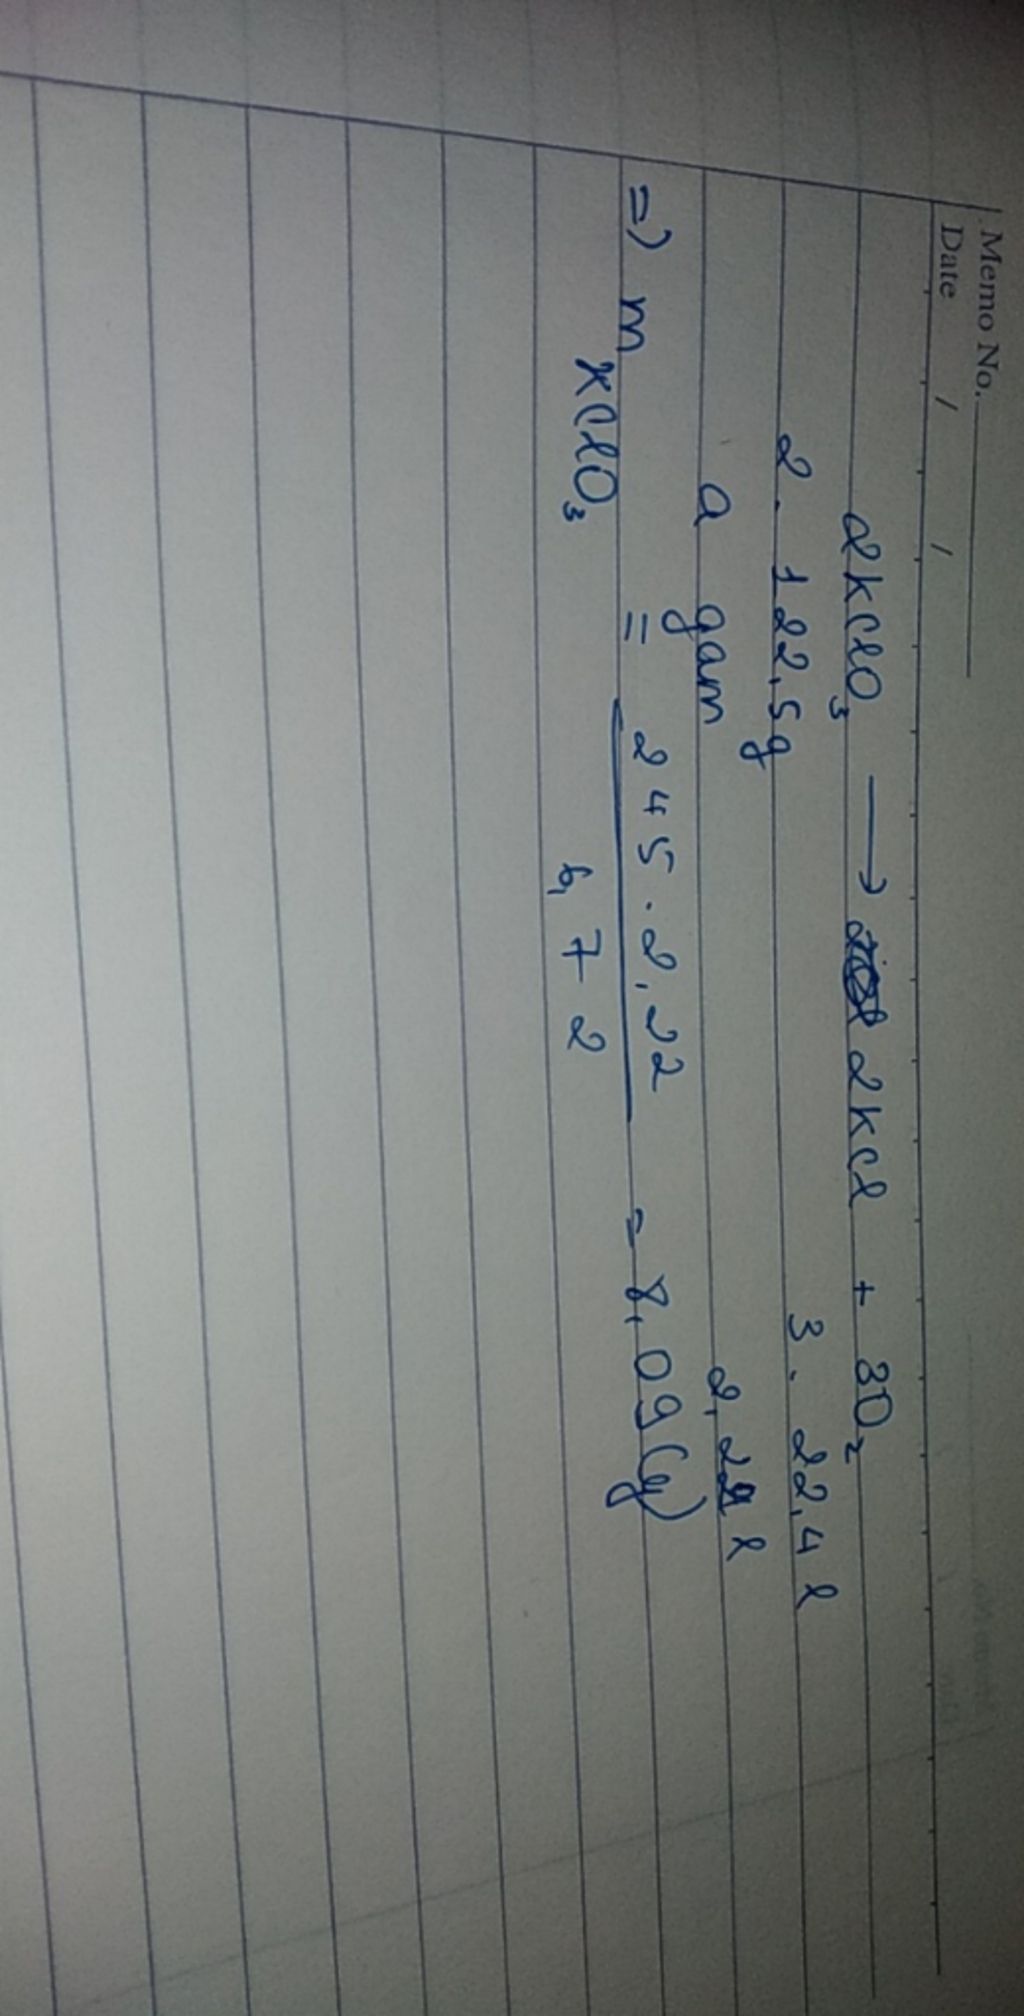 Memo No.
Date / /
2KClO₃ ⟶ 2KCl + 3O₂
2 . 122,5g 3 . 22,4 l
a gam 2,22 l
=> m KClO₃ = 245 . 2,22 / 6,72 = 8,09 (g)